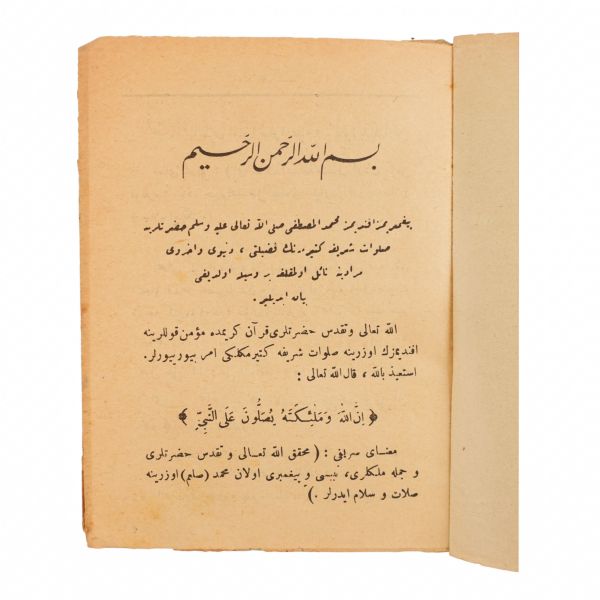 بسم الله الرحمن الرحيم
پيغمبريمز افنديمز محمد المصطفى صلى الله تعالى عليه وسلم حضرتلرينه
صلوات شريفه كتيرمه‌نك فضيلتى ، دنيوى واخروى
مرادينه نائل اولمقلغه بر وسيله اولديغى
بيان ايديلير .
الله تعالى وتقدس حضرتلرى قرآن كريمده مؤمن قوللرينه
افنديمزك اوزرينه صلوات شريفه كتيرمكلكى امر بيوريورلر .
استعيذ بالله ، قال الله تعالى :
﴿ اِنَّ اللهَ وَمَلٰئِكَتَهُ يُصَلُّونَ عَلَى النَّبِىِّ ﴾
معناى شريفى : ( محقق الله تعالى و تقدس حضرتلرى
و جمله ملكلرى، نبيسى و پيغمبرى اولان محمد (صلعم) اوزرينه
صلات و سلام ايدرلر . )